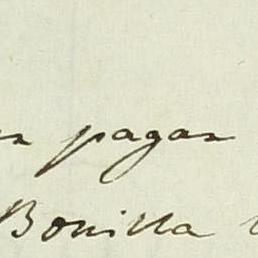 pagar
Bonilla